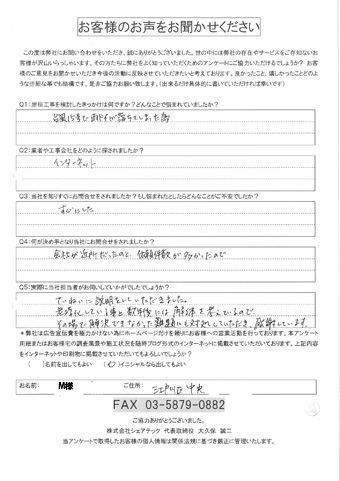 お客様のお声をお聞かせください
この度は弊社にお問い合わせをいただき、誠にありがとうございました。世の中には弊社の存在やサービスをご存知ないお
客様が沢山いらっしゃいます。その方たちに弊社をよく知っていただくためのアンケートにご協力いただけるでしょうか? お客
様のご意見をお聞かせいただき今後の活動に反映させていただきたいと考えております。良かったこと、嬉しかったことどのよ
うな些細な事でも結構です。是非ご協力お願い致します。(出来るだけ具体的に書いていただければ幸いです)
Q1:屋根工事を検討したきっかけは何ですか?どんなことで悩まれていましたか?
台風で雨どいが落ちてしまった為
Q2:業者や工事会社をどのように探されましたか?
インターネット
Q3:当社を知りすぐにお問合せをされましたか?もし悩まれたとしたらどんなことがご不安でしたか?
すぐにした
Q4:何が決め手となり当社にお問合せをされましたか?
会社が近所だったのと、依頼件数が多かったので
Q5:実際に当社担当者がお伺いしていかがでしたでしょうか?
ていねいに説明をしていただきました。
その場で解決できなかった難題にも対応していただき、感謝しています。
※弊社は広告宣伝費を極力かけない為にホームページだけを頼りにお客様への営業活動を行っております。本アンケート
用紙またはお客様宅の調査風景や施工状況を随時ブログ形式のインターネットに掲載させていただいております。上記内容
をインターネットや印刷物に掲載させていただいてもよろしいでしょうか?
( )名前を出してもよい (○)イニシャルなら出してもよい
お名前: M様 ご住所: 江戸川区中央
FAX 03-5879-0882
ご協力ありがとうございました。
株式会社シェアテック 代表取締役 大久保 誠二
当アンケートで取得したお客様の個人情報は関係法規に基づき厳正に管理いたします。